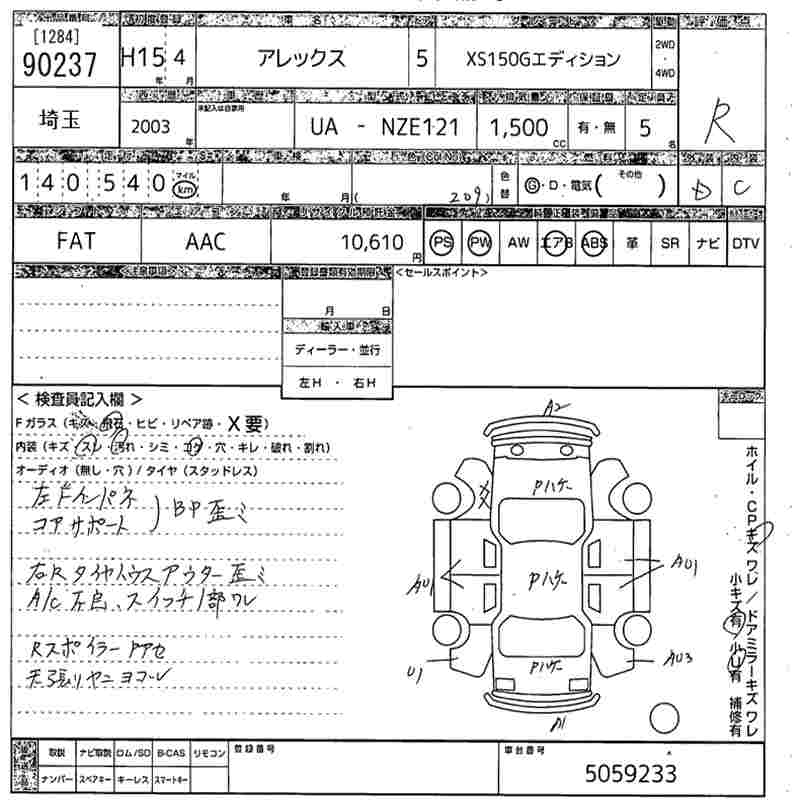 [1284]
90237
H15 4
年 月
アレックス
5
XS150Gエディション
2WD
・
4WD
R
埼玉
2003 年
未記入は自家用
UA - NZE121
1,500 cc
有・無
5 名
140540
マイル
km
年 月(
209)
色替
Ⓖ・D・電気( その他 )
D
C
FAT
AAC
10,610 円
PS
PW
AW
エアB
ABS
革
SR
ナビ
DTV
<セールスポイント>
月 日
ディーラー・並行
左H ・ 右H
< 検査員記入欄 >
Fガラス(キズ・飛石・ヒビ・リペア跡・X要)
内装(キズ スレ 汚れ・シミ・コゲ・穴・キレ・破れ・割れ)
オーディオ(無し・穴)/タイヤ(スタッドレス)
左Fインパネ
コアサポート
BP歪ミ
右Rタイヤハウスアウター歪ミ
A/C 、スイッチ1部ワレ
Rスポイラー
天張リヤニヨゴレ
A2
Pハゲ
AU1
Pハゲ
AU1
U1
Pハゲ
AU3
A1
ホイル・CPキズ ワレ/ドアミラーキズ ワレ
小キズ有/小U有 補修有
取説
ナビ取説
ロム/SD
B-CAS
リモコン
ナンバー
スペアキー
キーレス
スマートキー
登録番号
車台番号
5059233